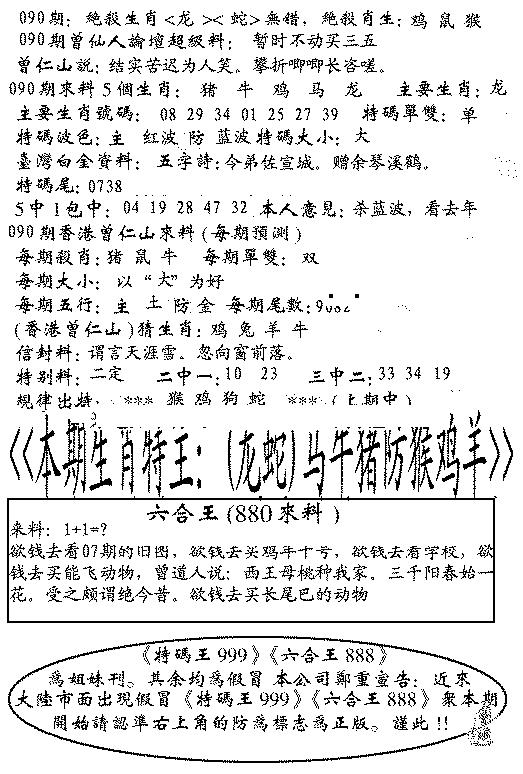 090期：绝殺生肖<龙><蛇>無错，绝殺肖生：鸡 鼠 猴
090期曾仙人論壇超級料： 暂时不动买三五
曾仁山説：结实苦迟为人笑。攀折唧唧长咨嗟。
090期來料5個生肖： 猪 牛 鸡 马 龙 主要生肖：龙
主要生肖號碼： 08 29 34 01 25 27 39 特碼單雙：单
特碼波色：主 红波 防 蓝波 特碼大小：大
臺灣白金資料： 五字詩：令弟佐宣城。赠余琴溪鹤。
特碼尾：0738
5中1包中：04 19 28 47 32 本人意見：杀蓝波，看去年
090期香港曾仁山來料(每期預測)
每期殺肖：猪 鼠 牛 每期單雙：双
每期大小： 以“大”为好
每期五行：主 土 防 金 每期尾數：
(香港曾仁山)猜生肖：鸡 兔 羊 牛
信封料：谓言天涯雪。忽向窗前落。
特别料：二定 二中一：10 23 三中二：33 34 19
規律出特： *** 猴 鸡 狗 蛇 ***（上期中）
《本期生肖特王：(龙蛇)马牛猪防猴鸡羊》
六合王(880來料)
来料：1+1=?
欲钱去看07期的旧图，欲钱去买鸡年十号，欲钱去看学校，欲
钱去买能飞动物，曾道人说：西王母桃种我家。三千阳春始一
花。受之颇谓绝今昔。欲钱去买长尾巴的动物
《特碼王999》《六合王888》
爲姐妹刊。其余均爲假冒 本公司鄭重宣告：近來
大陸市面出現假冒《特碼王999》《六合王888》衆本期
開始請認準右上角的防爲標志爲正版。謹此!!